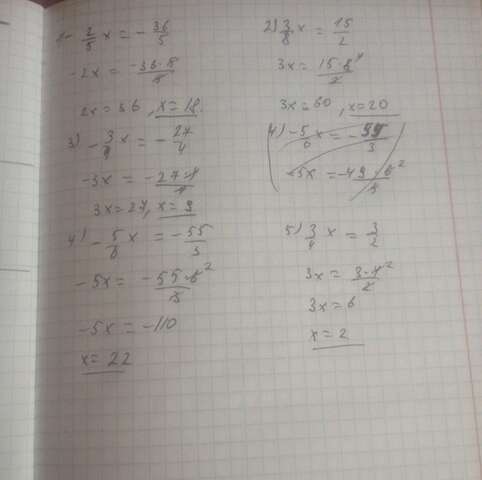 1- 2/5 x = - 36/5
-2x = -36·5/5
2x = 36, x = 18.
2) 3/8 x = 15/2
3x = 15·8⁴/2
3x = 60, x = 20
3) - 3/4 x = - 27/4
-3x = - 27·4/4
3x = 27, x = 9
4) -5/6 x = - 55/3
-5x = -49·6²/3
4) - 5/6 x = - 55/3
-5x = - 55·6²/3
-5x = -110
x = 22
5) 3/4 x = 3/2
3x = 3·4²/2
3x = 6
x = 2